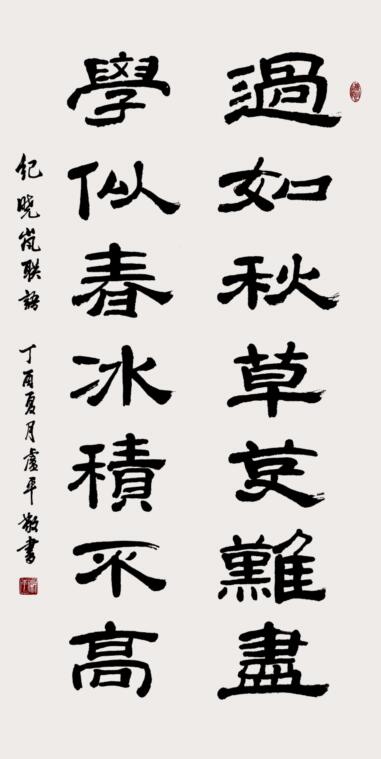 過如秋草芟難盡
學似春冰積不高
纪晓岚联語 丁酉夏月虔平敬書